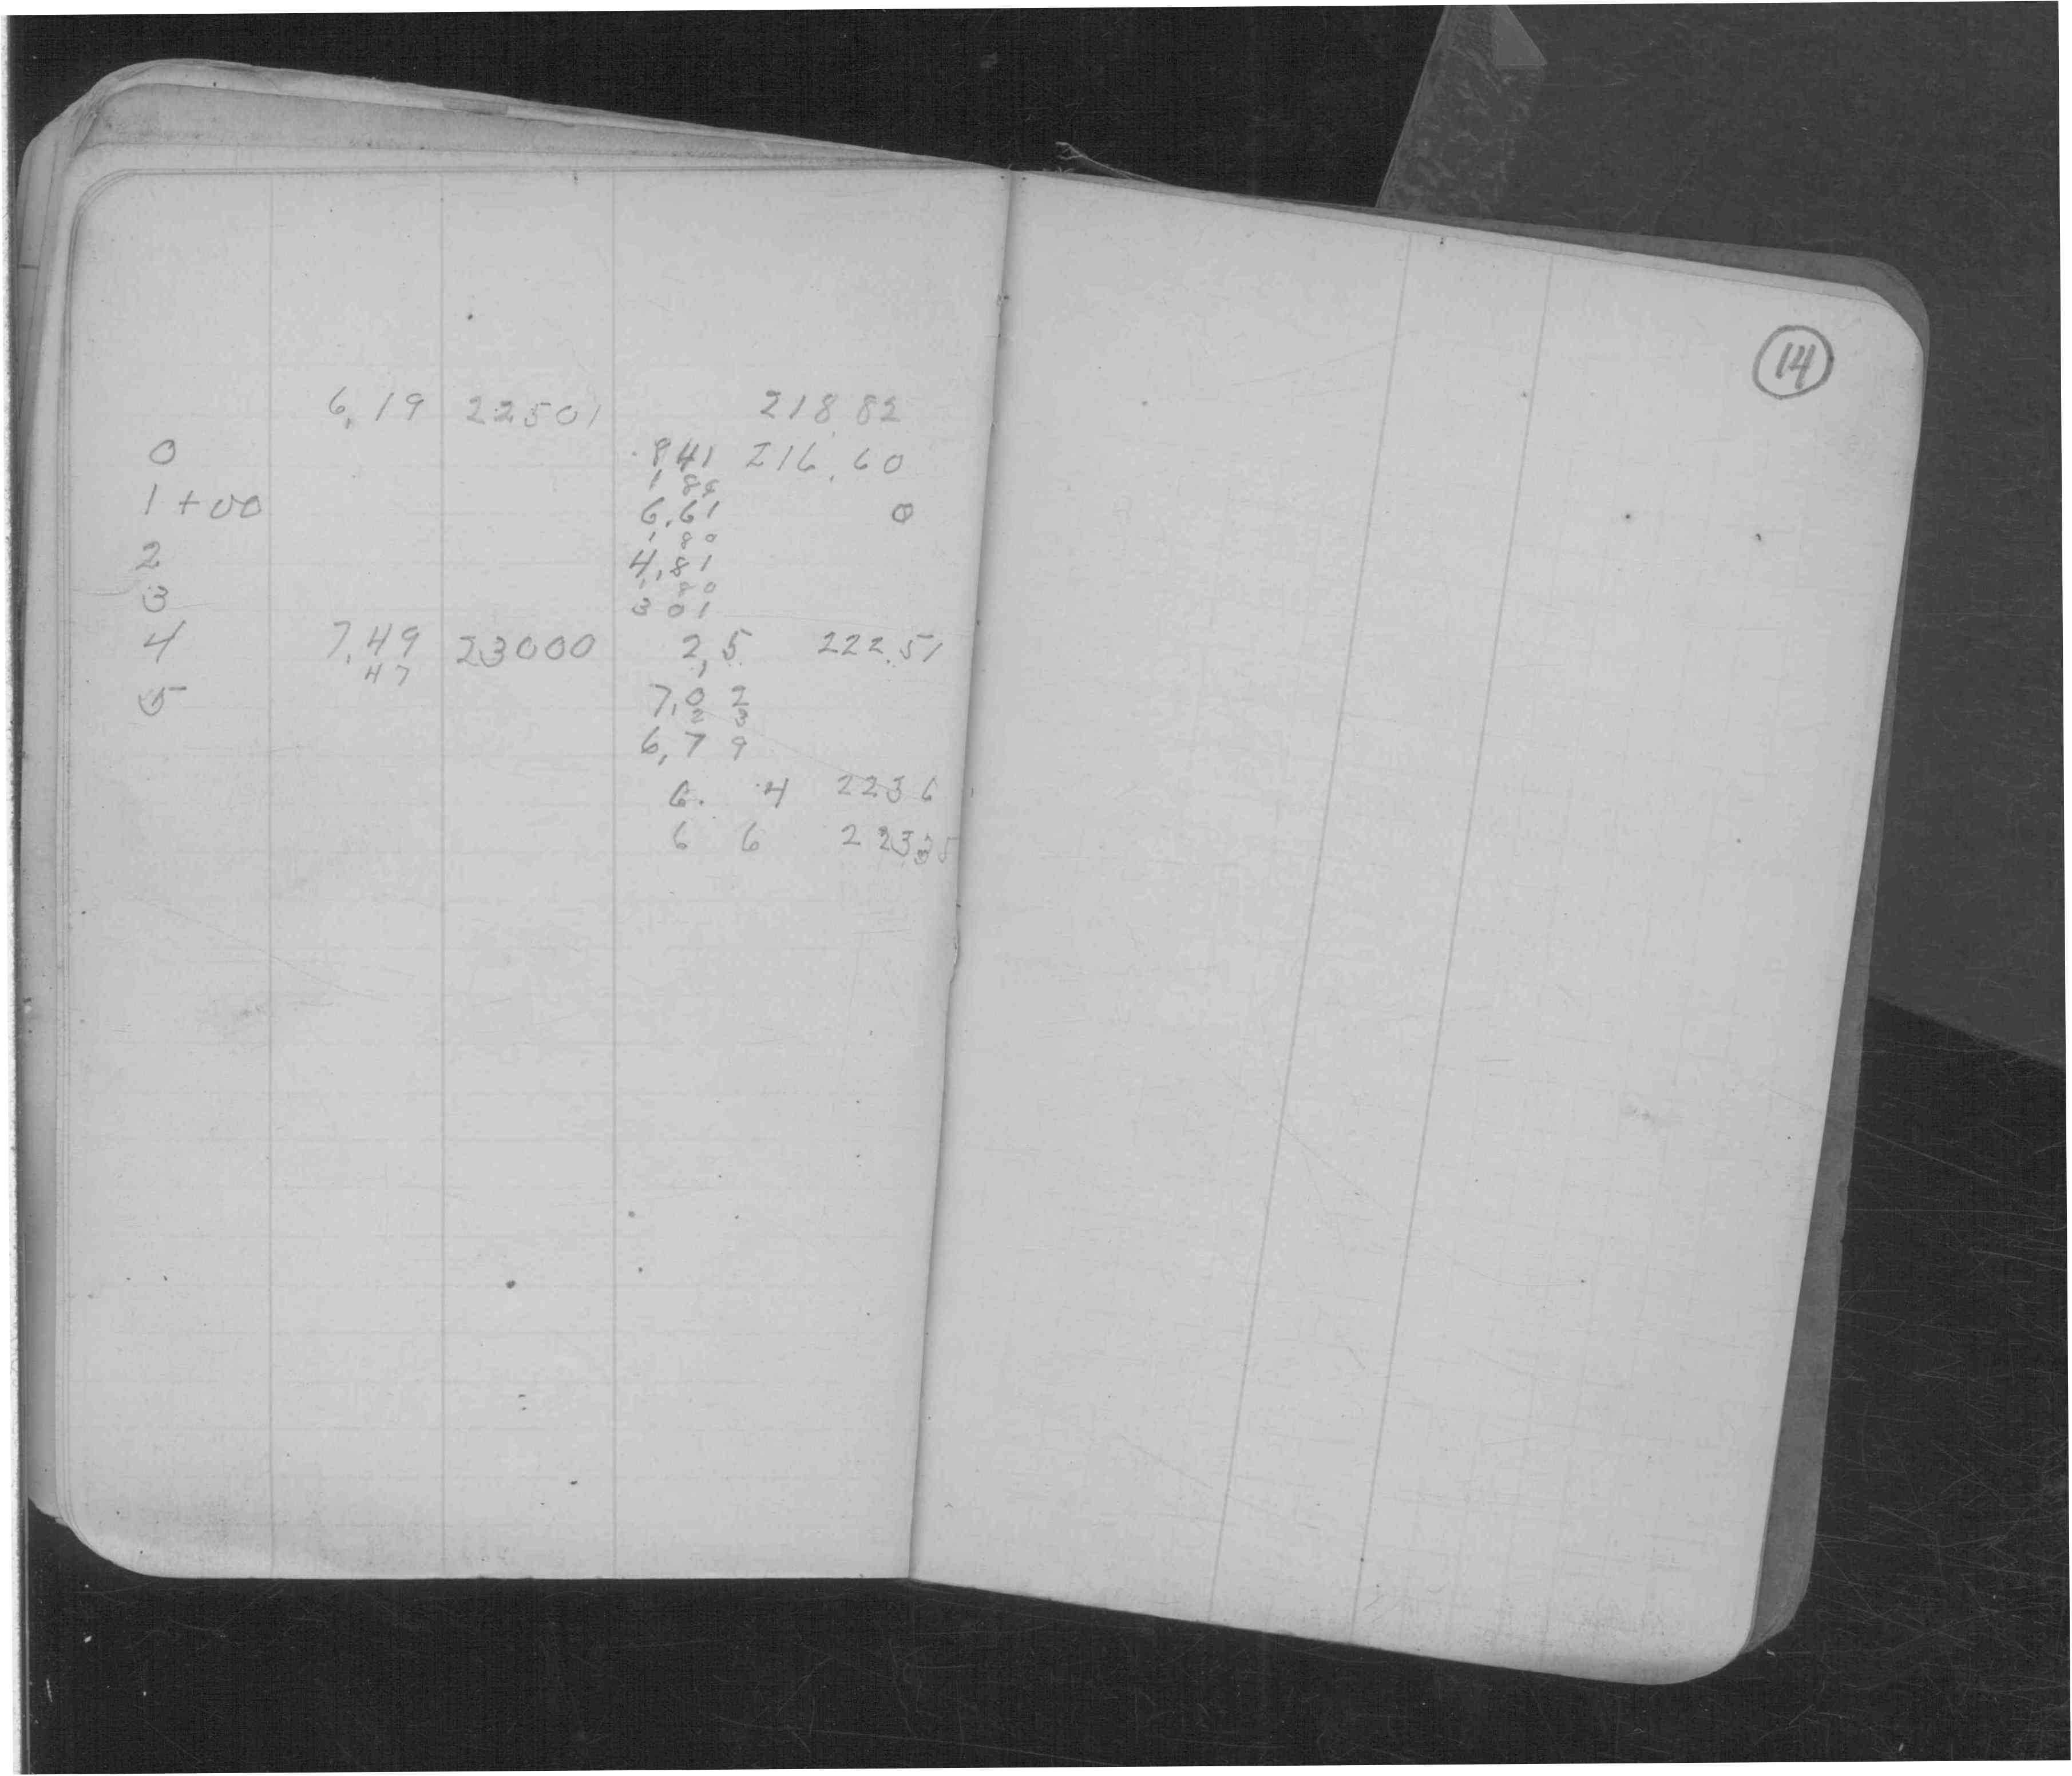 14
6,19 22501 218.82
0 .841 216.60
1 80
1+00 6.61 0
1 80
2 4.81
1 80
3 301
4 7.49 23000 2,5 222.51
47
5 7,02
2 3
6,79
6. .4 2236
6 6 22335